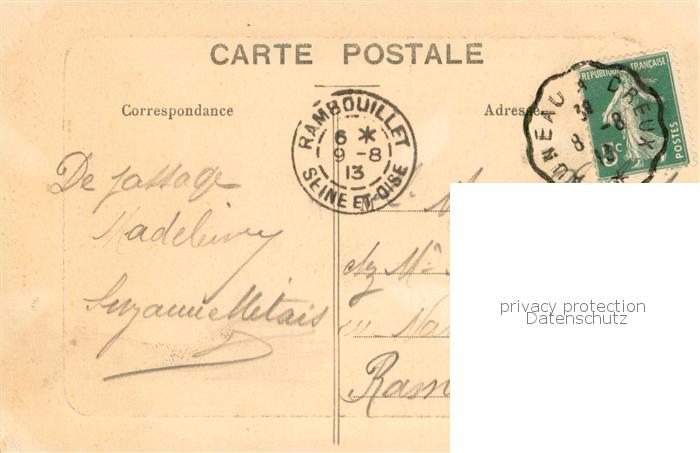 CARTE POSTALE
Correspondance
Adresse
RAMBOUILLET
6 *
9-8
13
SEINE ET-OISE
AUNEAU A DREUX
8 -8
13
*
REPUBLIQUE FRANÇAISE
POSTES
5c
De passage
Suzanne Métais
Ram
privacy protection
Datenschutz